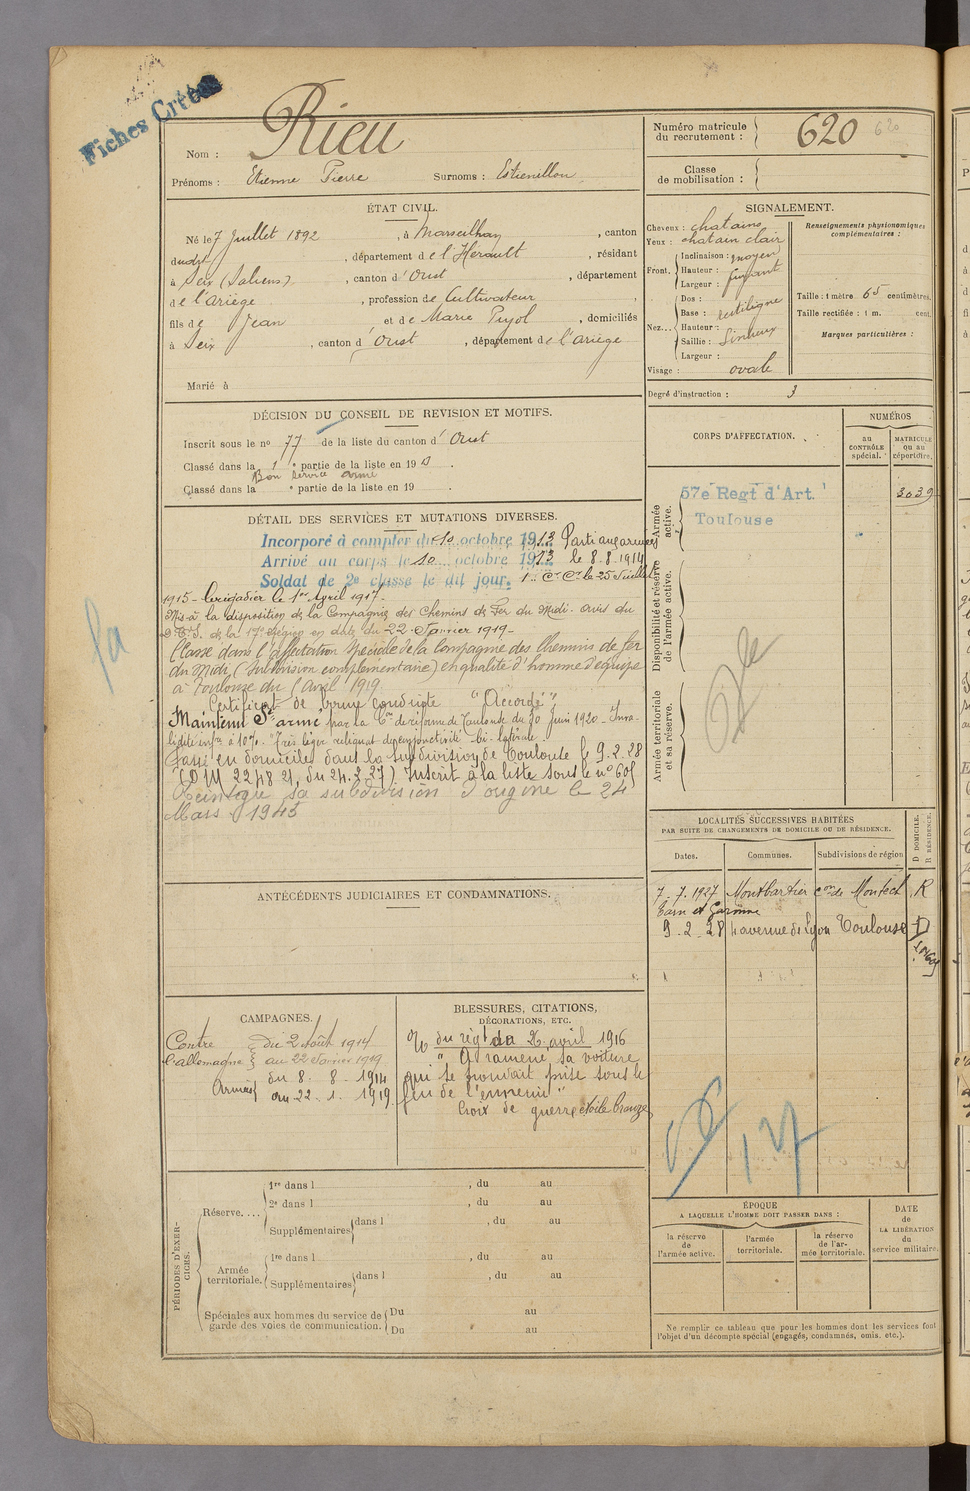 Fiches Créées
Nom : Rieu
Prénoms : Etienne Pierre Surnoms : Estienillon
Numéro matricule du recrutement : 620 620
Classe de mobilisation :
ÉTAT CIVIL.
Né le 7 Juillet 1892, à Marseilhan, canton
dudit, département de l'Hérault, résidant
à Seix (Saliens), canton d'Oust, département
de l'ariège, profession de Cultivateur,
fils de Jean et de Marie Pujol, domiciliés
à Seix, canton d'Oust, département de l'ariège
Marié à
SIGNALEMENT.
Cheveux : chatains
Yeux : chatain clair
Front. Inclinaison : moyen
Hauteur : fuyant
Largeur :
Nez... Dos :
Base : rectiligne
Hauteur :
Saillie : Sinueux
Largeur :
Visage : ovale
Renseignements physionomiques complémentaires :
Taille : 1 mètre 65 centimètres.
Taille rectifiée : 1 m. cent.
Marques particulières :
Degré d'instruction : 3
DÉCISION DU CONSEIL DE REVISION ET MOTIFS.
Inscrit sous le no 77 de la liste du canton d'Oust
Classé dans la 1 e partie de la liste en 19 13.
Bon service armé
Classé dans la e partie de la liste en 19 .
DÉTAIL DES SERVICES ET MUTATIONS DIVERSES.
Incorporé à compter du 10 octobre 1913 Parti aux armées
Arrivé au corps le 10 octobre 1913 le 8.8.1914
Soldat de 2e classe le dit jour. 1er Cr Cr le 25 Juillet
1915 - brigadier le 1er Avril 1917 -
Mis à la disposition de la Compagnie des Chemins de Fer du Midi - avis du
de la 17e Région en date du 22 Janvier 1919 -
Classé dans l'affectation Spéciale de la Compagnie des Chemins de fer
du Midi, (Subdivision complémentaire) en qualité d'homme d'équipe
à Toulouse du 1 Avril 1919.
Certificat de bonne conduite "Accordé"
Maintenu St armé par la Con de réforme de Toulouse du 30 Juin 1920 - Inva-
lidité infre à 10%. "Très léger reliquat de conjonctivité bi-latérale
Passé en domicile dans la subdivision de Toulouse le 9.2.28
(DM 2248 21, du 24.2.27) Inscrit à la liste sous le no 605
Réintégré sa subdivision d'origine le 24
Mars 1945
CORPS D'AFFECTATION.
NUMÉROS
au CONTRÔLE spécial.
MATRICULE ou au répertoire.
Armée active.
57e Regt d'Art.
Toulouse
3039
Disponibilité et réserve de l'armée active.
Armée territoriale et sa réserve.
LOCALITÉS SUCCESSIVES HABITÉES
PAR SUITE DE CHANGEMENTS DE DOMICILE OU DE RÉSIDENCE.
Dates. Communes. Subdivisions de région
D DOMICILE.
R RÉSIDENCE.
7.7.1927 Montbartier con de Montech R
Tarn et Garonne
9.2.28 4 avenue de Lyon Toulouse D
ANTÉCÉDENTS JUDICIAIRES ET CONDAMNATIONS.
CAMPAGNES.
Contre l'allemagne du 2 Août 1914
au 22 Janvier 1919
Armées du 8.8.1914
au 22.1.1919
BLESSURES, CITATIONS,
DÉCORATIONS, ETC.
du régt du 26 avril 1916
"A ramené sa voiture
qui se trouvait prise sous le
feu de l'ennemi"
Croix de guerre étoile bronze
PÉRIODES D'EXERCICES.
Réserve.... 1re dans l , du au
2e dans l , du au
Supplémentaires dans l , du au
Armée territoriale. 1re dans l , du au
Supplémentaires dans l , du au
Spéciales aux hommes du service de garde des voies de communication. Du au
Du au
ÉPOQUE
A LAQUELLE L'HOMME DOIT PASSER DANS :
la réserve de l'armée active.
l'armée territoriale.
la réserve de l'armée territoriale.
DATE de LA LIBÉRATION du service militaire.
Ne remplir ce tableau que pour les hommes dont les services font
l'objet d'un décompte spécial (engagés, condamnés, omis, etc.).